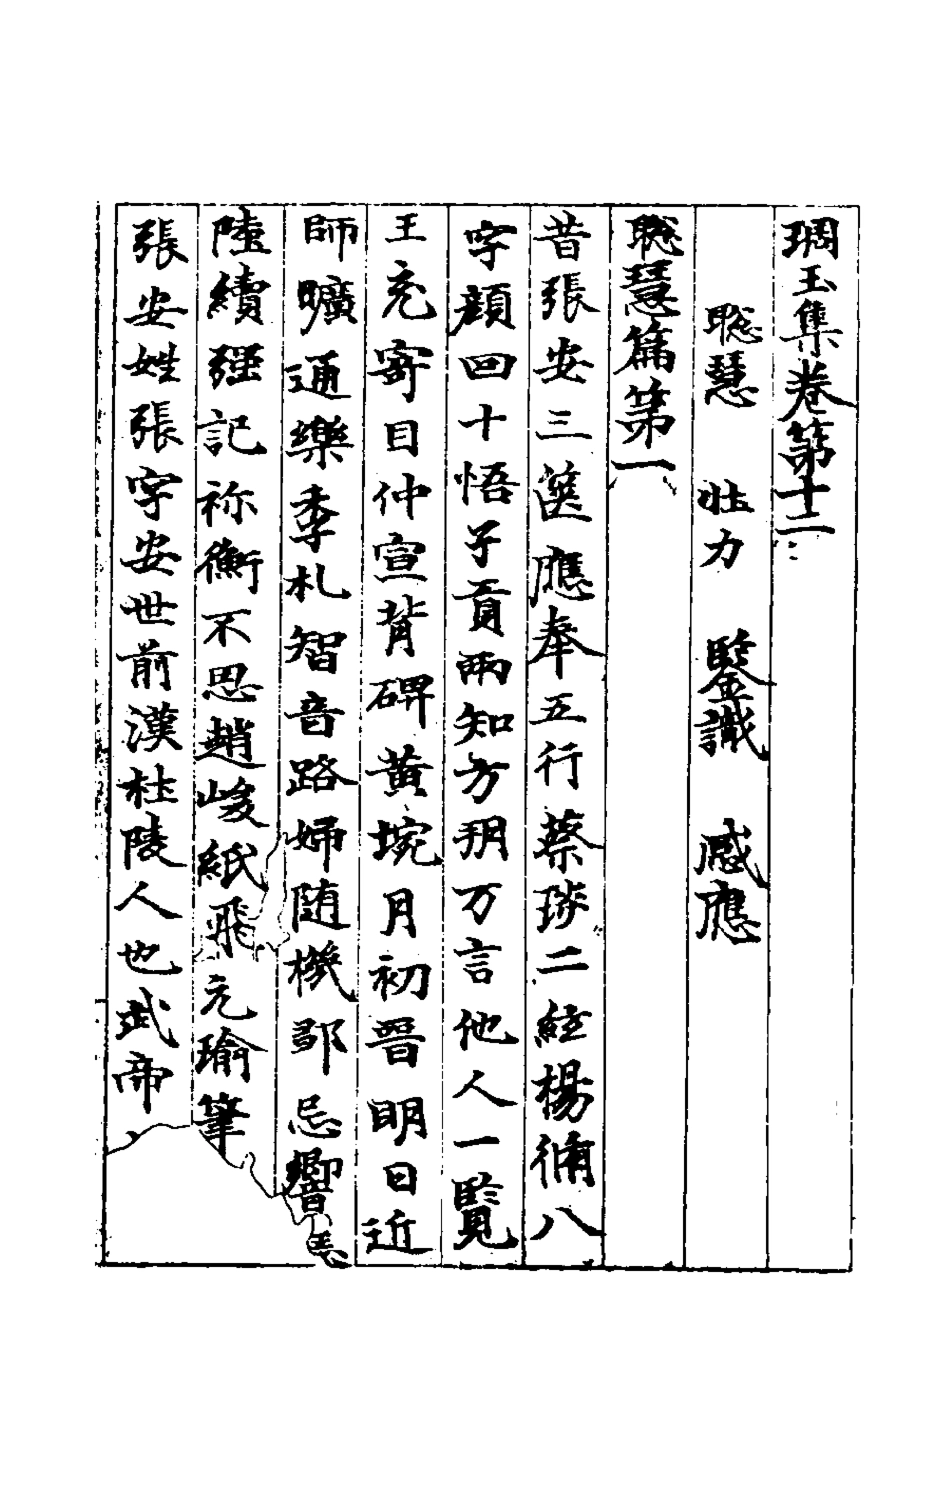 琱玉集卷第十二
聡慧 壮力 鑒識 感應
聡慧篇第一
昔張安三篋應奉五行蔡琰二經楊脩八
字顔回十悟子貢兩知方朔万言他人一覽
王充寄目仲宣背碑黄琬月初晉明日近
師曠通樂季札智音路婦随機鄒忌響
陸續强記祢衡不思趙峻紙飛元瑜筆
張安姓張字安世前漢杜陵人也武帝